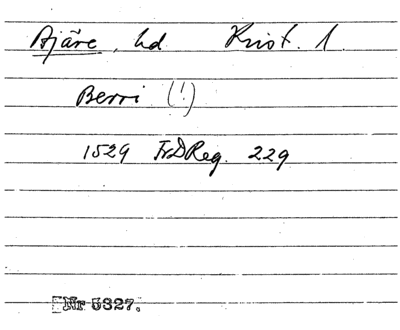 Bjäre, hd Krist. l.
Berri (!)
1529 FrDReg. 229
Nr 5327.